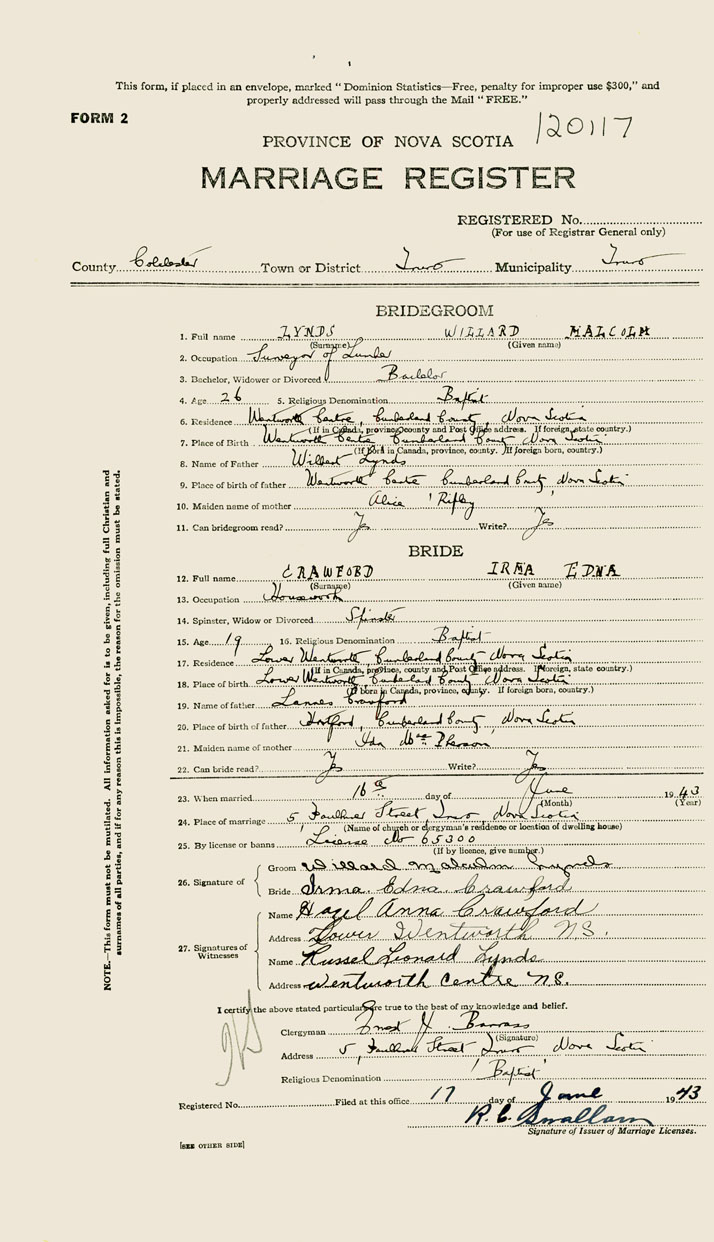 This form, if placed in an envelope, marked "Dominion Statistics—Free, penalty for improper use $300," and
properly addressed will pass through the Mail "FREE."
FORM 2
120117
PROVINCE OF NOVA SCOTIA
MARRIAGE REGISTER
REGISTERED No.
(For use of Registrar General only)
County Colchester Town or District Truro Municipality Truro
BRIDEGROOM
1. Full name LYNDS WILLARD MALCOLM
(Surname) (Given name)
2. Occupation Surveyor of Lumber
3. Bachelor, Widower or Divorced Bachelor
4. Age 26 5. Religious Denomination Baptist
6. Residence Wentworth Centre, Cumberland County, Nova Scotia
(If in Canada, province, county and Post Office address. If foreign, state country.)
7. Place of Birth Wentworth Centre Cumberland County Nova Scotia
(If born in Canada, province, county. If foreign born, country.)
8. Name of Father Wilbert Lynds
9. Place of birth of father Wentworth Centre Cumberland County, Nova Scotia
10. Maiden name of mother Alice Ripley
11. Can bridegroom read? Yes Write? Yes
BRIDE
12. Full name CRAWFORD IRMA EDNA
(Surname) (Given name)
13. Occupation Housework
14. Spinster, Widow or Divorced Spinster
15. Age 19 16. Religious Denomination Baptist
17. Residence Lower Wentworth Cumberland County Nova Scotia
(If in Canada, province, county and Post Office address. If foreign, state country.)
18. Place of birth Lower Wentworth, Cumberland County Nova Scotia
(If born in Canada, province, county. If foreign born, country.)
19. Name of father Crawford
20. Place of birth of father Cumberland County, Nova Scotia
21. Maiden name of mother Ida MacPherson
22. Can bride read? Yes Write? Yes
23. When married 16th day of June 1943
(Month) (Year)
24. Place of marriage 5 Faulkner Street, Truro Nova Scotia
(Name of church or clergyman's residence or location of dwelling house)
25. By license or banns License No 65300
(If by licence, give number.)
26. Signature of
Groom Willard Malcolm Lynds
Bride Irma Edna Crawford
27. Signatures of Witnesses
Name Hazel Anna Crawford
Address Lower Wentworth N.S.
Name Russel Leonard Lynds
Address Wentworth Centre N.S.
I certify the above stated particulars are true to the best of my knowledge and belief.
Clergyman
(Signature)
Address 5, Faulkner Street Truro Nova Scotia
Religious Denomination Baptist
Registered No. Filed at this office 17 day of June 1943
R. C. Smallam
Signature of Issuer of Marriage Licenses.
[SEE OTHER SIDE]
NOTE.—This form must not be mutilated. All information asked for is to be given, including full Christian and
surnames of all parties, and if for any reason this is impossible, the reason for the omission must be stated.